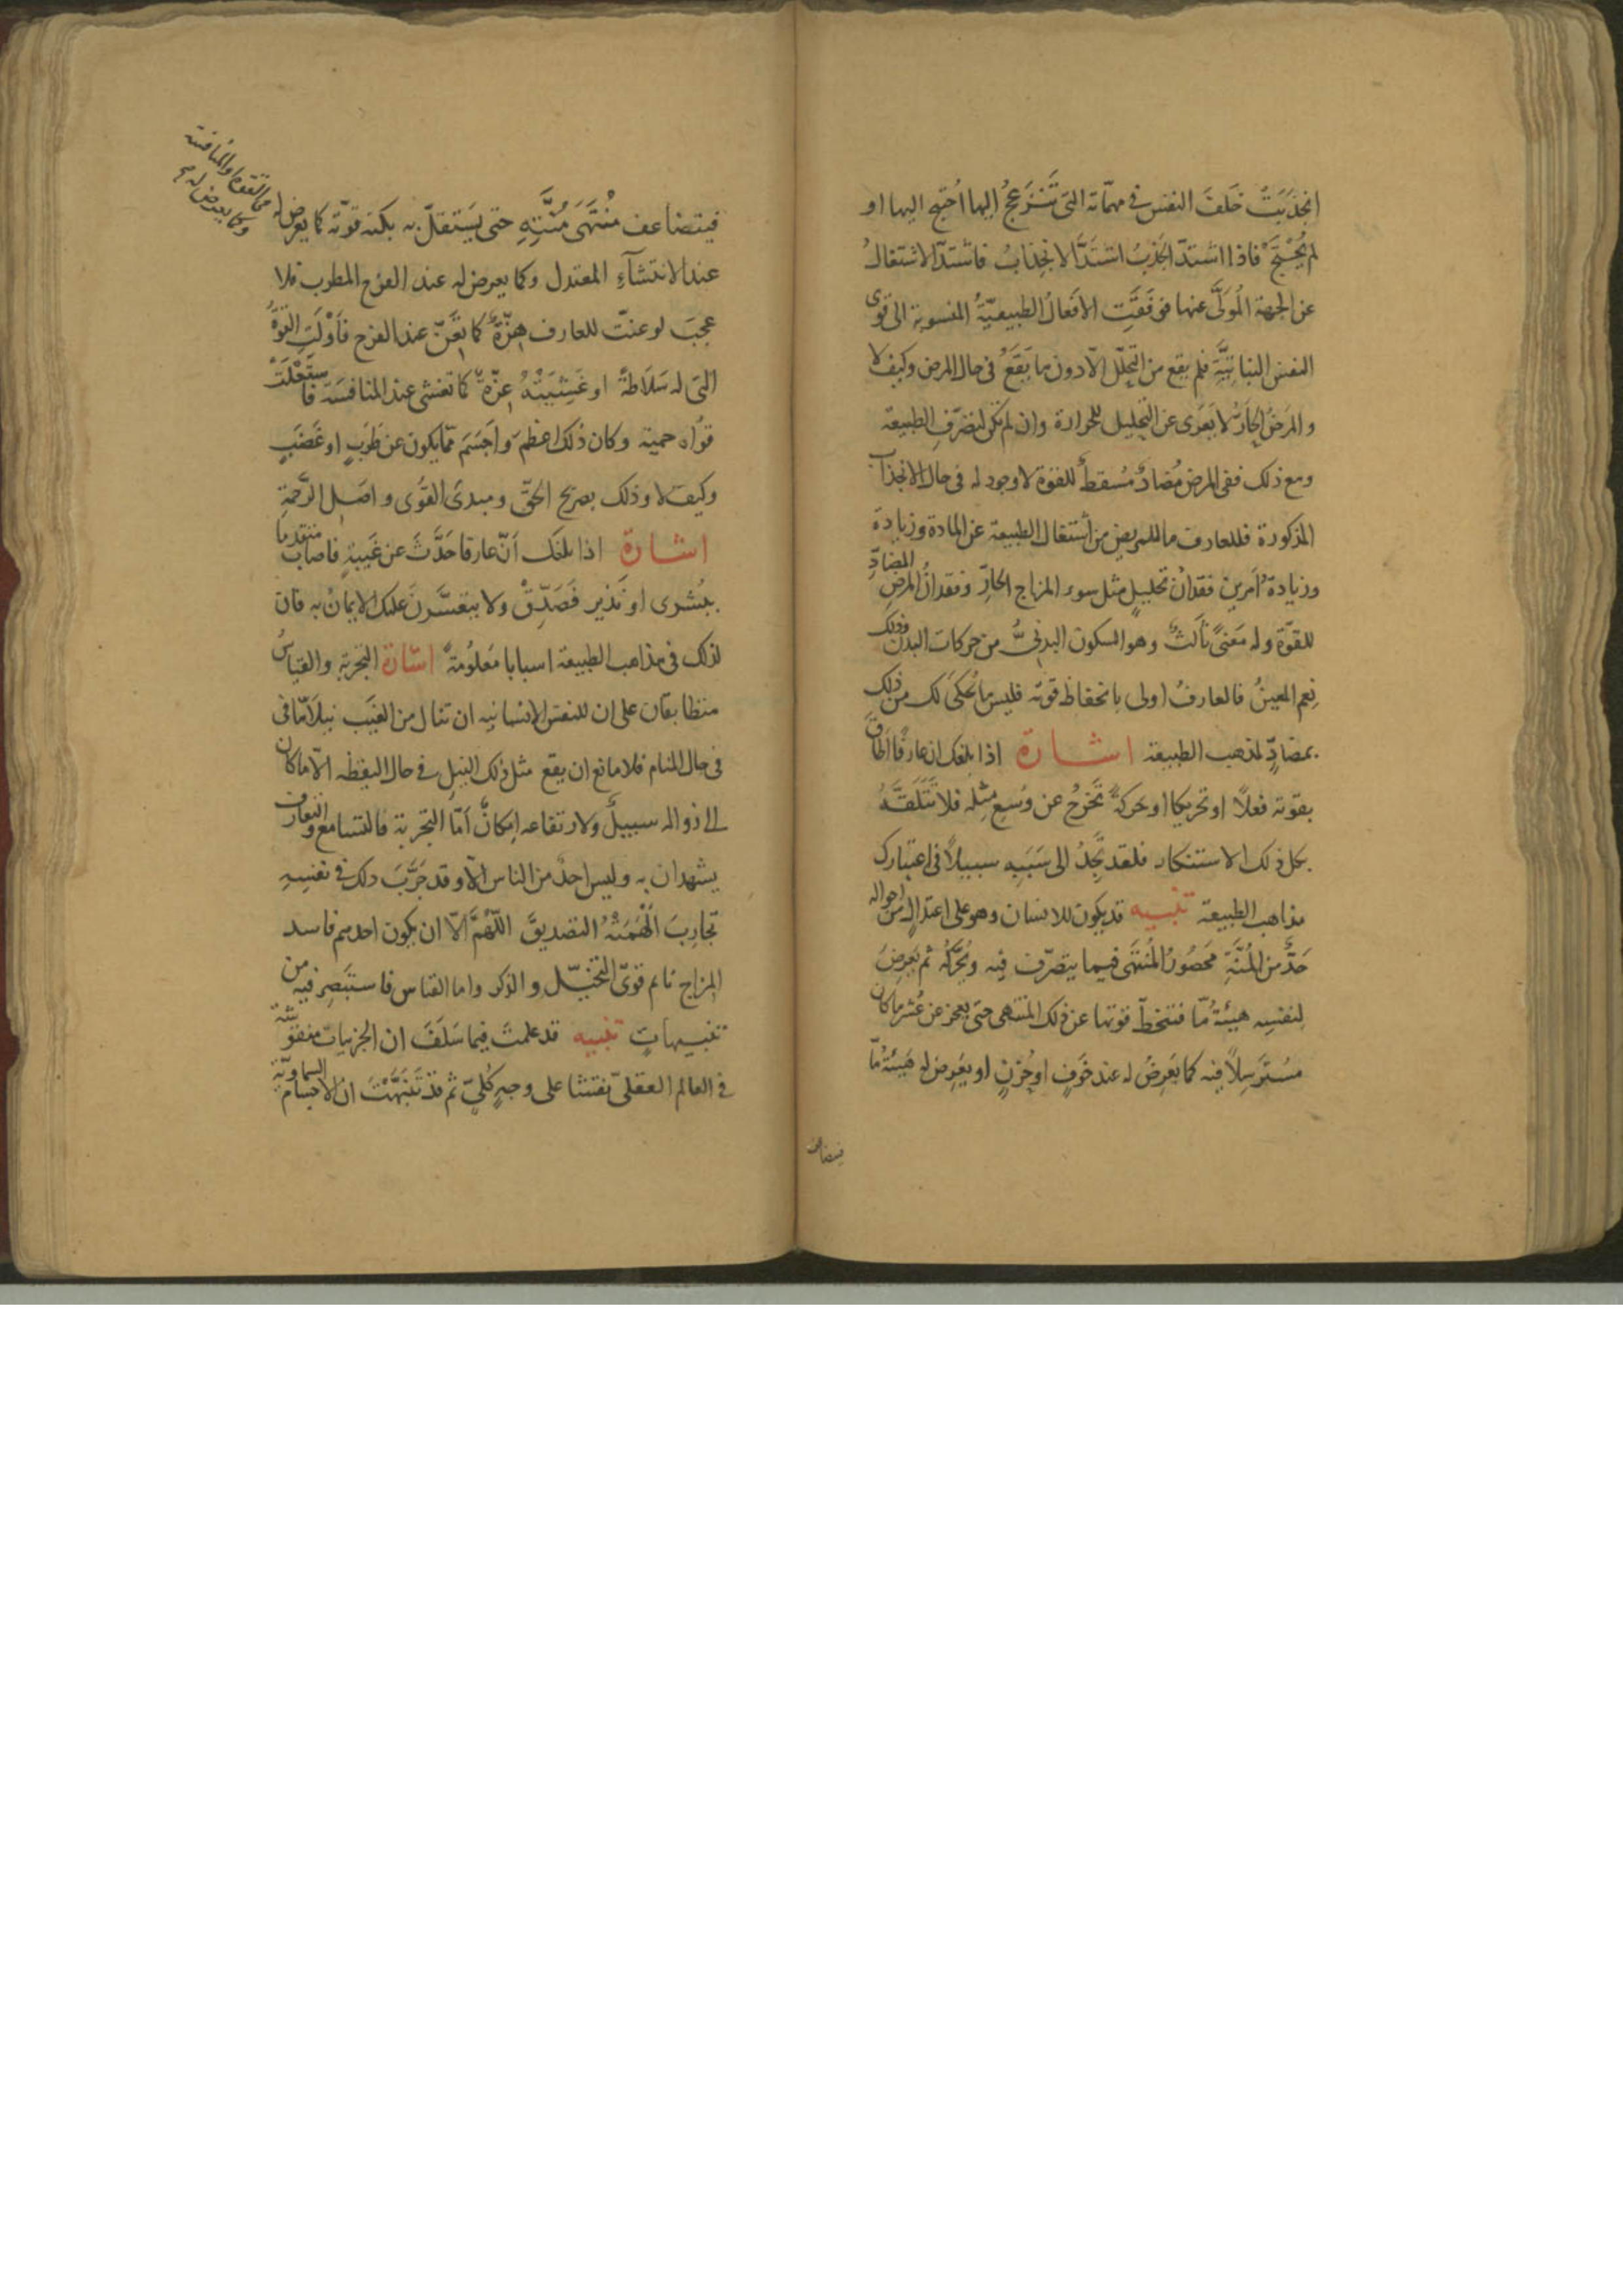 انجَذَبَتْ خَلفَ النفس فى مهمّاته التى تَنْزَعِجُ اليها اُحتِيج اليها او
لم يُحْتَجْ فاذا اشتدّ الجَذْبُ اشتَدَّ الانجِذابُ فاشتدّ الاشتغالُ
عن الجهة المُوَلَّى عنها فوقَفَتِ الافعالُ الطبيعيّةُ المنسوبة الى قوى
النفس النباتيَّةِ فلم يقع من التحلّل الّا دون ما يَقَعُ فى حال المرض وكيف لا
والمرَضُ الحارُّ لا يَعرَى عن التحليل للحرارة وان لم تكن لتصرّف الطبيعة
ومع ذلك ففى المرض مُضادٌّ مُسقِطٌ للقوّة لا وجود له فى حال الانجذاب
المذكورة فللعارف ما للمريض من اشتغال الطبيعة عن المادة وزيادة
وزيادة اَمرَين فقدانُ تحليلٍ مثل سوء المزاج الحارِّ وفقدانُ المرض المضادِّ
للقوّة وله مَعنىً ثالثٌ وهو السكون البدنىُّ من حركات البدن وذلك
نِعم المعينُ فالعارفُ اولى بانحفاظ قوته فليس ما يُحكى لك من ذلك
بمضادٍّ لمذهب الطبيعة اشارة اذا بلغك ان عارفًا اَطاقَ
بقوته فعلًا او تحريكا او حركةً تخرُجُ عن وُسعِ مِثلِه فلا تَتَلَقَّهُ
بكل ذلك الاستنكار فلقد تَجِدُ الى سَبَبِه سبيلًا فى اعتبارك
مذاهب الطبيعة تنبيه قد يكون للانسان وهو على اعتدالٍ من احواله
حَدٌّ من المُنَّةِ محصُورُ المُنتَهَى فيما يتصرّف فيه ويُحَرِّكُه ثم يَعرِضُ
لنفسِه هيئةٌ مّا فتنحَطّ قوتها عن ذلك المنتهى حتى يعجز عن عُشر ما كان
مُستَرسِلًا فيه كما يَعرِضُ له عند خَوفٍ او حُزنٍ او يَعرِض له هَيئةٌ مّا
فيتضاعف
فيتضاعف مُنْتَهَى مُنَّتِهِ حتى يَستقلّ به بكنه قوّته كما يعرض له
وكما يعرض له
عند الانتشآءِ المعتدل وكما يعرض له عند الفرح المطرب فلا
عَجَبَ لو عنّت للعارف هِزّةٌ كما يَعِنُّ عند الفرح فاَوْلَتِ القوّةُ
التى له سَلاطةً او غَشِيَتْهُ عِزّةٌ كما تغشى عند المنافسة فاستَعَلَتْ
قُواه حميّة وكان ذلك اعظمَ واَجسَمَ ممّا يكون عن طَرَبٍ او غَضَبٍ
وكيف لا وذلك بصريح الحقّ ومبدئ القُوَى واصل الرَّحمةِ
اشارة اذا بلغك اَنّ عارفا حَدَّثَ عن غَيبةٍ فاصاب متقدما
ببُشرى او نَذير فَصَدِّقْ ولا يتعسَّرنَ عليك الايمانُ به فان
لذلك فى مذاهب الطبيعة اسبابا مَعلُومةً اشارة التجربة والقياسُ
متطابقان على ان للنفس الانسانيه ان تنال من الغيب نيلًا مّا فى
فى حال المنام فلا مانع ان يقع مثل ذلك النيل فى حال اليقظه الّا ما كان
الى زواله سبيلٌ ولارتفاعه اِمكانٌ اَمّا التجربة فالتسامع والتعارف
يشهدان به وليس احدٌ من الناس الّا وقد جَرَّبَ ذلك فى نفسِهِ
تجارِبَ اَلْهَمَتْهُ التصديقَ اللّهُمَّ اِلّا ان يكون احدهم فاسد
المزاج نائم قوىّ التخيّل والذكر واما القياس فاستَبصِر فيه من
تنبيهاتٍ تنبيه قد علمتَ فيما سَلَفَ ان الجزئيات منقوشة
فى العالم العقلىّ نقشا على وجهٍ كُلّىّ ثم قد تَنَبَّهْتَ ان الاجسام السماويّة